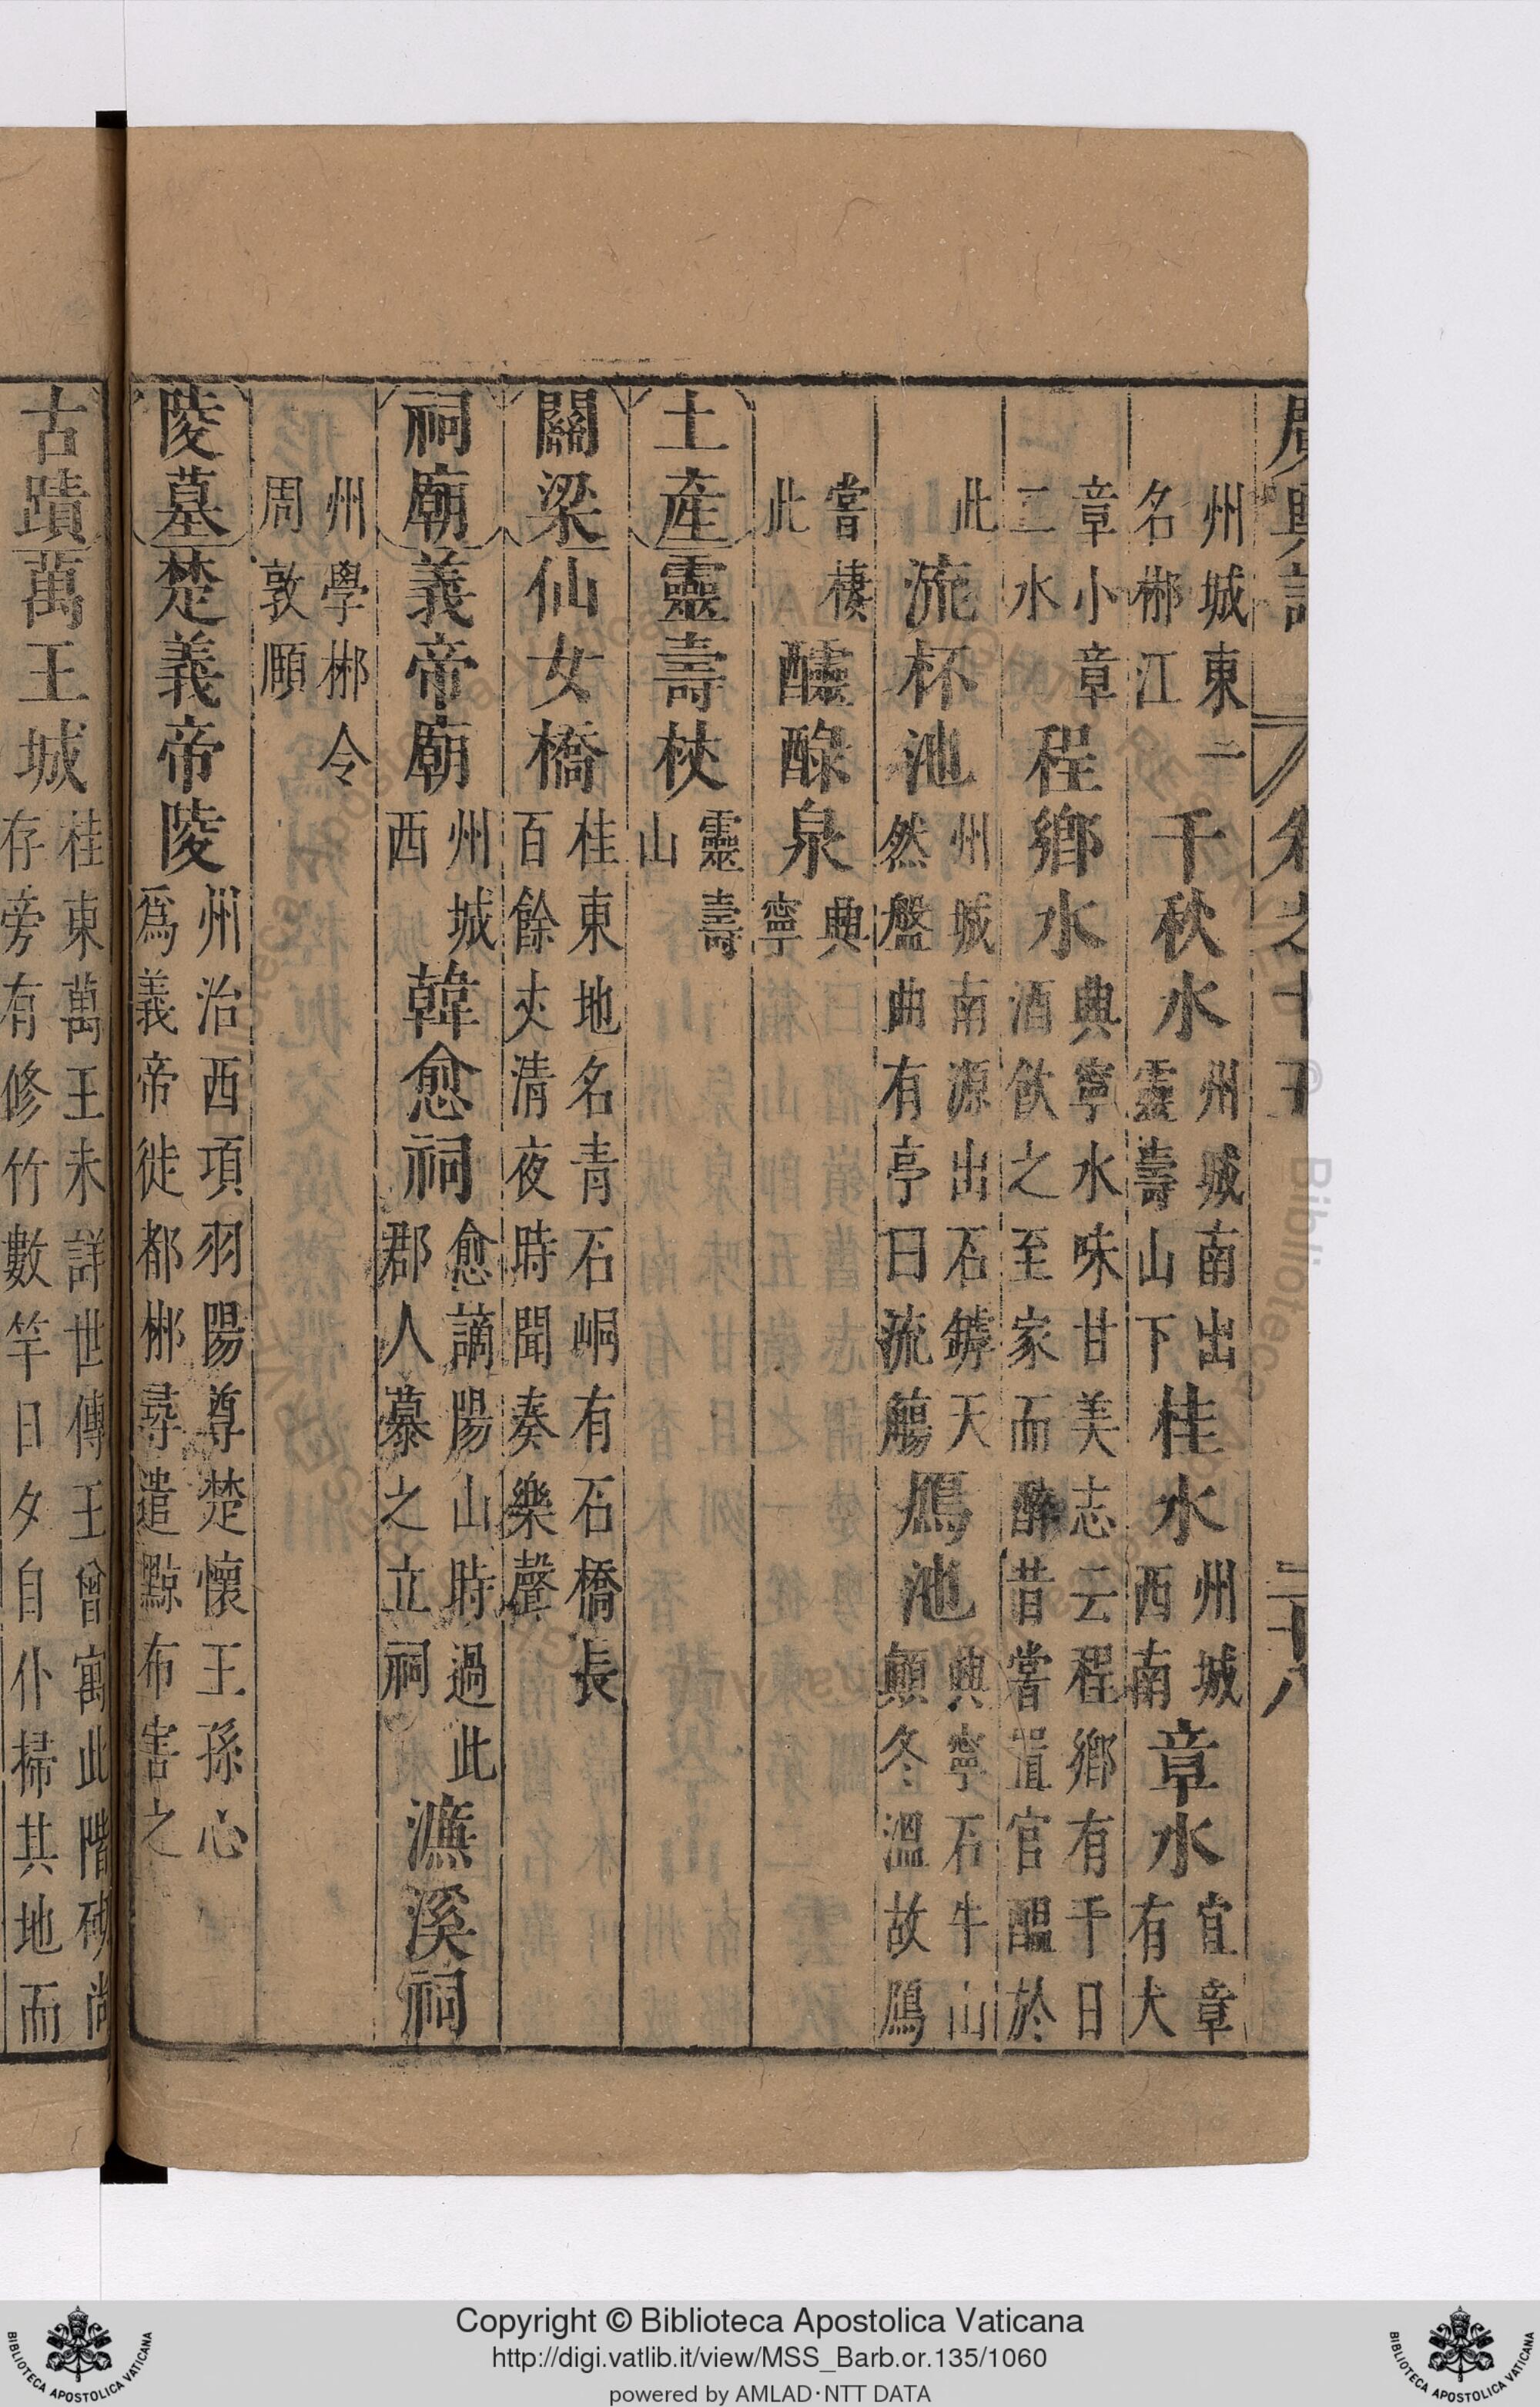 廣輿記 卷之十五 二十八
州城東一名郴江 千秋水 州城南出靈壽山下 桂水 州城西南 章水 宜章有大
章小章二水 程鄉水 典寧水味甘美志云程鄉有千日酒飲之至家而醉昔嘗置官醞於
此 流杯池 州城南源出石罅天然盤曲有亭曰流觴 鴈池 典寧石牛山顛冬溫故鴈
嘗棲此 醽醁泉 典寧
土產 靈壽杖 靈壽山
關梁 仙女橋 桂東地名青石峒有石橋長百餘夾清夜時聞奏樂聲
祠廟 義帝廟 州城西 韓愈祠 愈謫陽山時過此郡人慕之立祠 濂溪祠
州學郴令周敦頤
陵墓 楚義帝陵 州治西項羽陽尊楚懷王孫心爲義帝徙都郴尋遣黥布害之
古蹟 萬王城 桂東萬王未詳世傳王曾寓此階砌尚存旁有修竹數竿日夕自仆掃其地而
Copyright © Biblioteca Apostolica Vaticana
http://digi.vatlib.it/view/MSS_Barb.or.135/1060
powered by AMLAD·NTT DATA
BIBLIOTECA APOSTOLICA VATICANA
BIBLIOTECA APOSTOLICA VATICANA